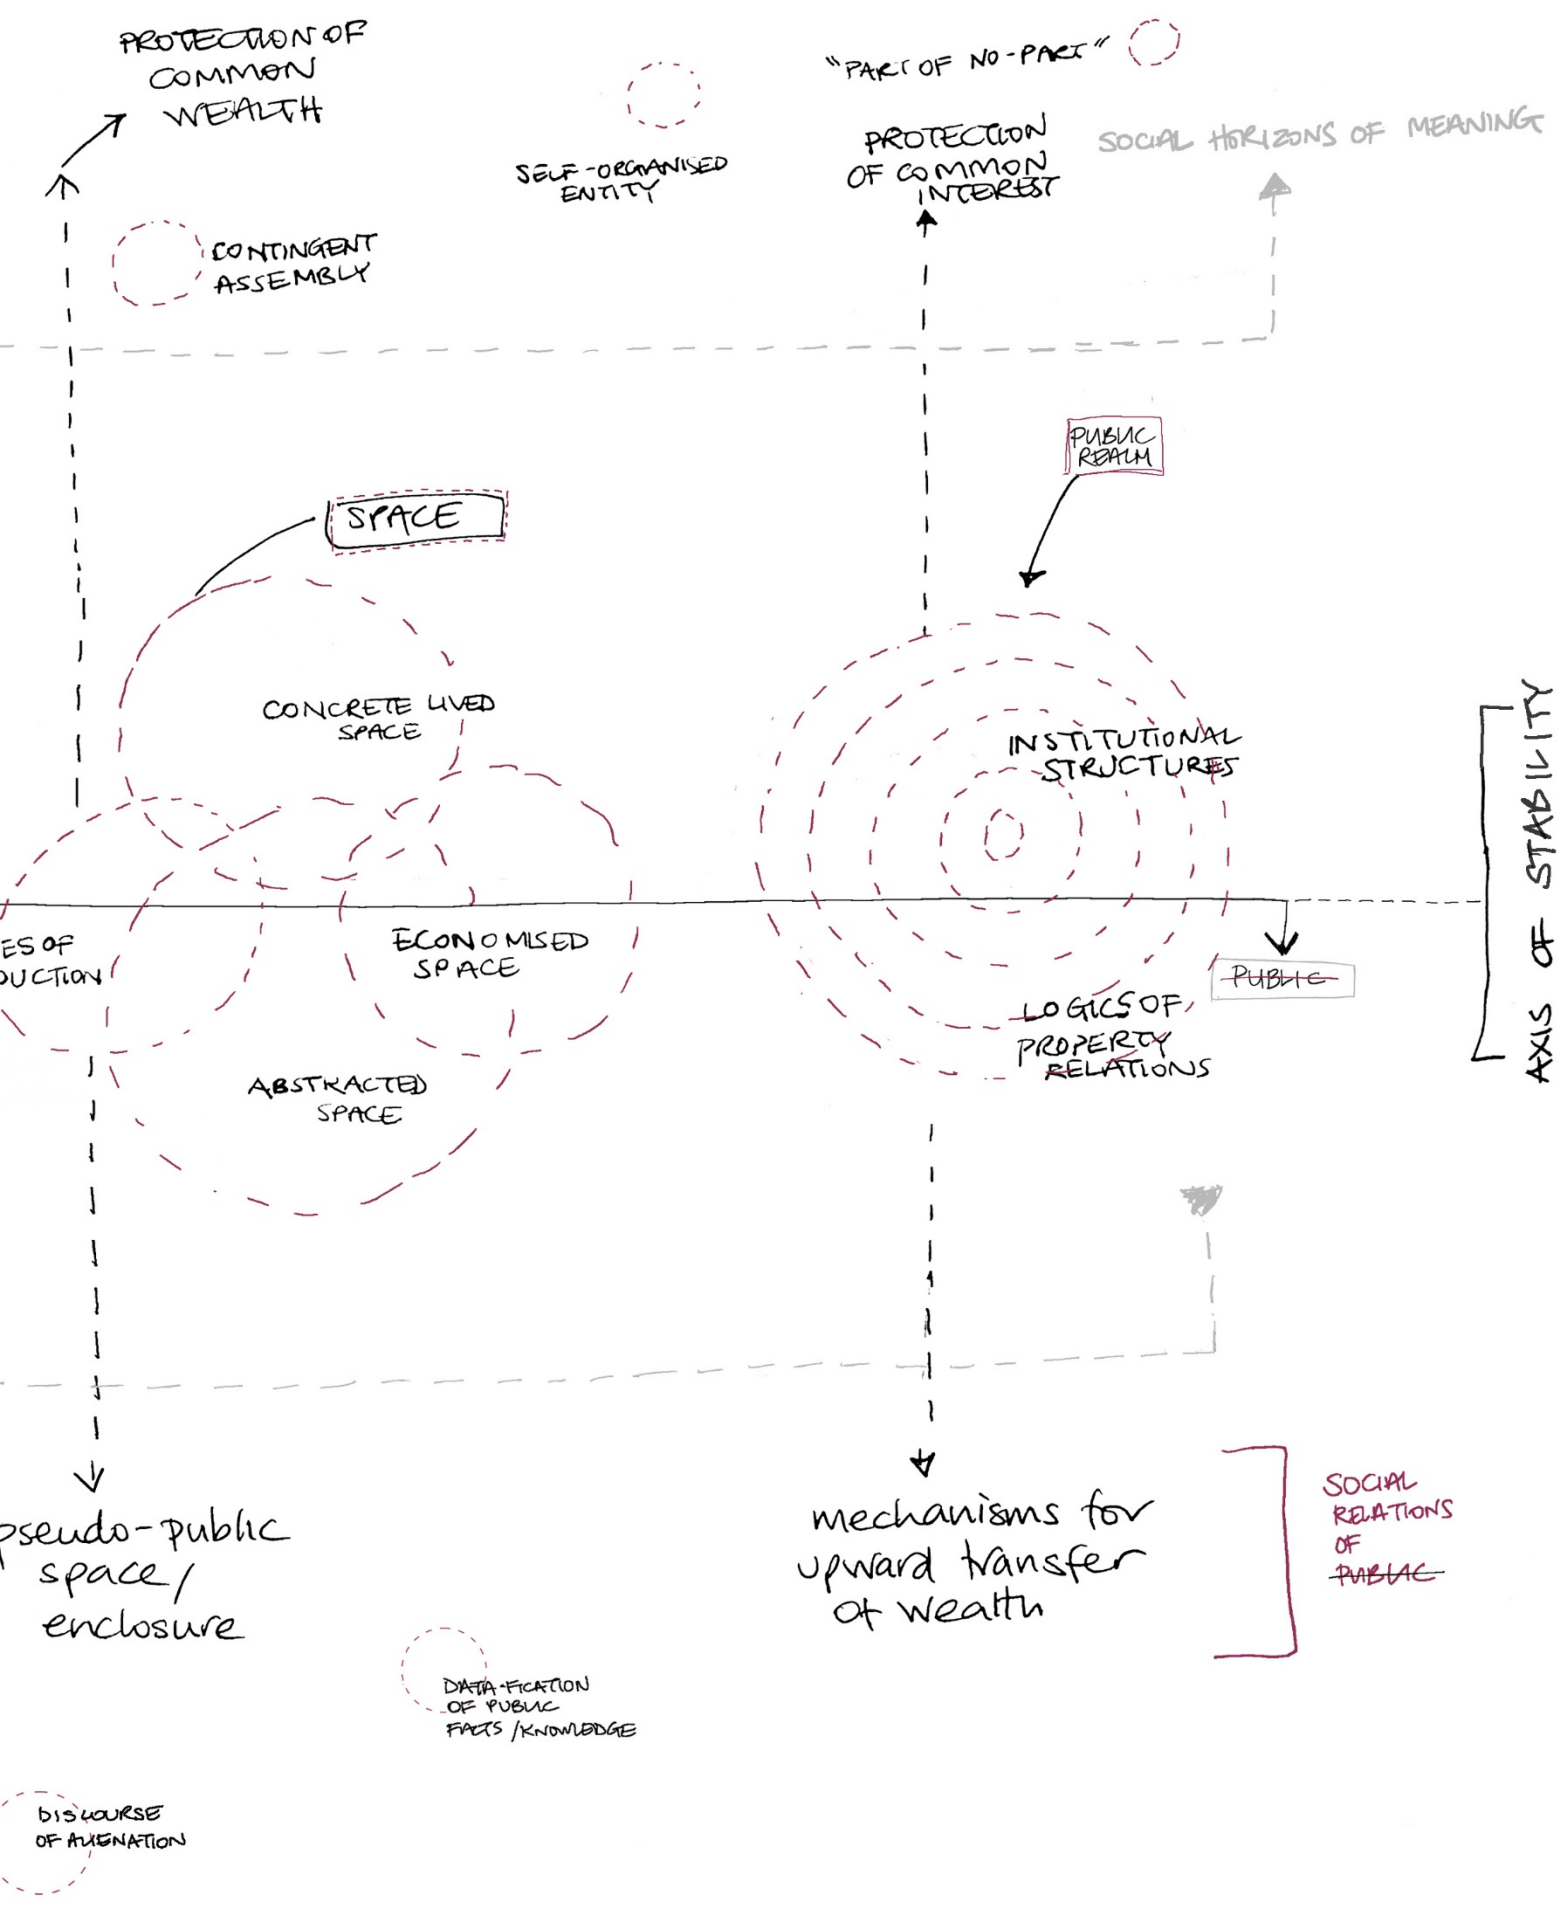 PROTECTION OF
COMMON
WEALTH
"PART OF NO-PART"
SELF-ORGANISED
ENTITY
PROTECTION
OF COMMON
INTEREST
SOCIAL HORIZONS OF MEANING
CONTINGENT
ASSEMBLY
PUBLIC
REALM
SPACE
CONCRETE LIVED
SPACE
INSTITUTIONAL
STRUCTURES
AXIS OF STABILITY
ES OF
DUCTION
ECONOMISED
SPACE
PUBLIC
LOGICS OF
PROPERTY
RELATIONS
ABSTRACTED
SPACE
pseudo-public
space/
enclosure
mechanisms for
upward transfer
of wealth
SOCIAL
RELATIONS
OF
PUBLIC
DATA-FICATION
OF PUBLIC
FACTS/KNOWLEDGE
DISCOURSE
OF ALIENATION